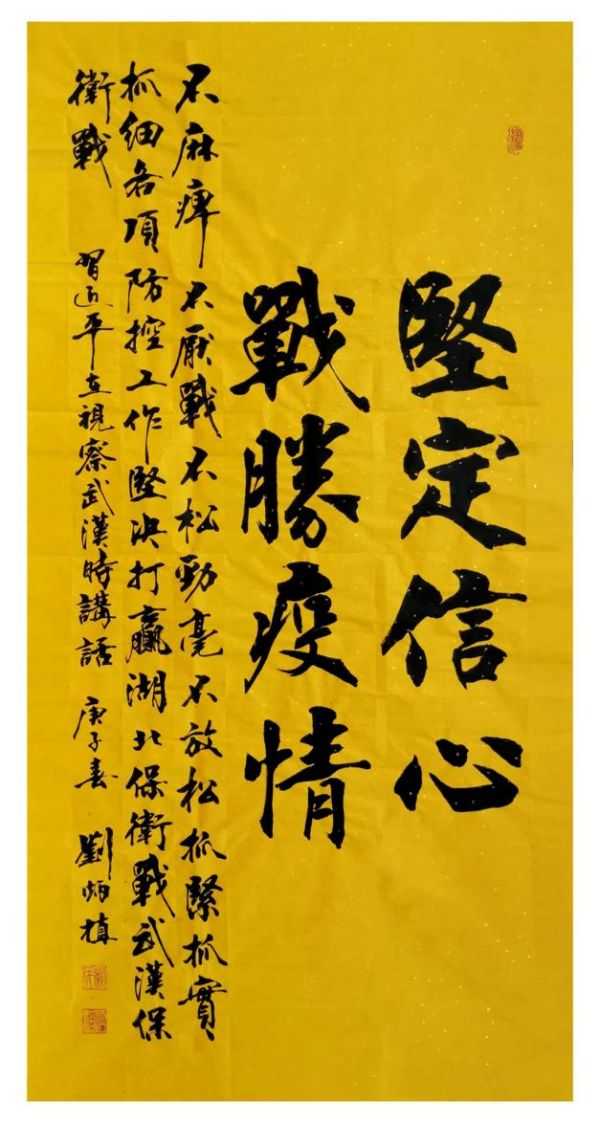 堅定信心
戰勝疫情
不麻痺不厭戰不松勁毫不放松抓緊抓實
抓細各項防控工作堅决打赢湖北保衛戰武漢保
衛戰
習近平在視察武漢時講話 庚子春 劉炳植